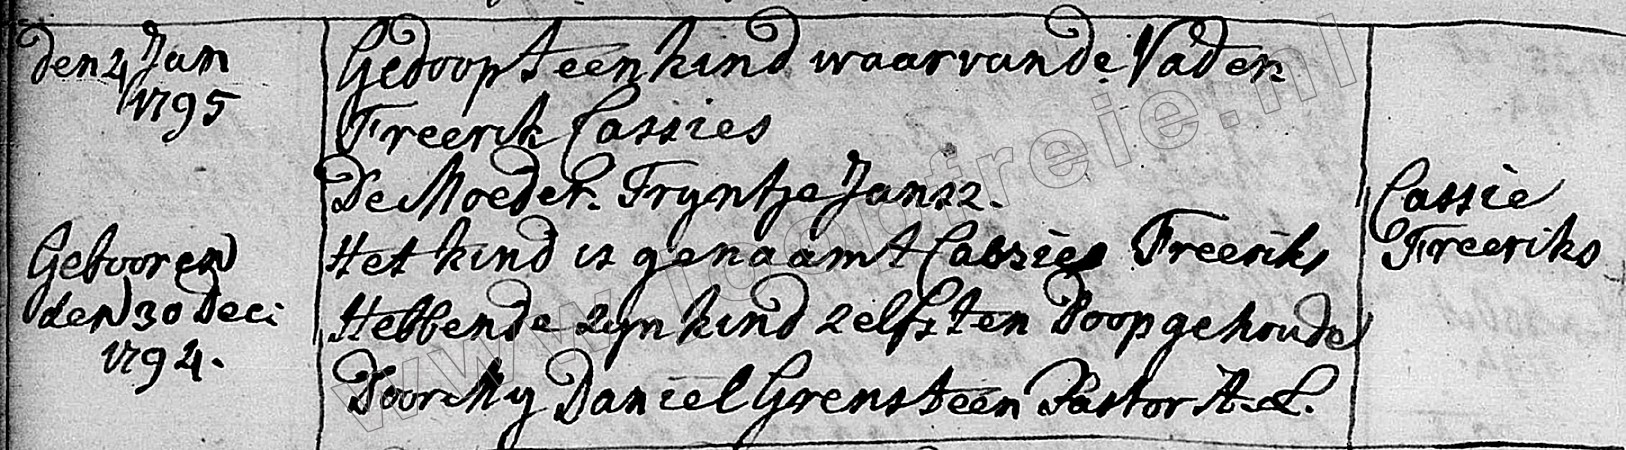 den 4 Jan
1795
Gebooren
den 30 Deci
1794.
Gedoopt een kind waar van de Vader
Freerik Cassies
De Moeder. Tryntje Jansz.
Het kind is genaamt Cassies Freeriks
Hebbende zyn kind zelfs ten Doop gehoude
Door My Daniel Grensteen Pastor A. L.
Cassie
Freeriks
www.loopfreie.nl